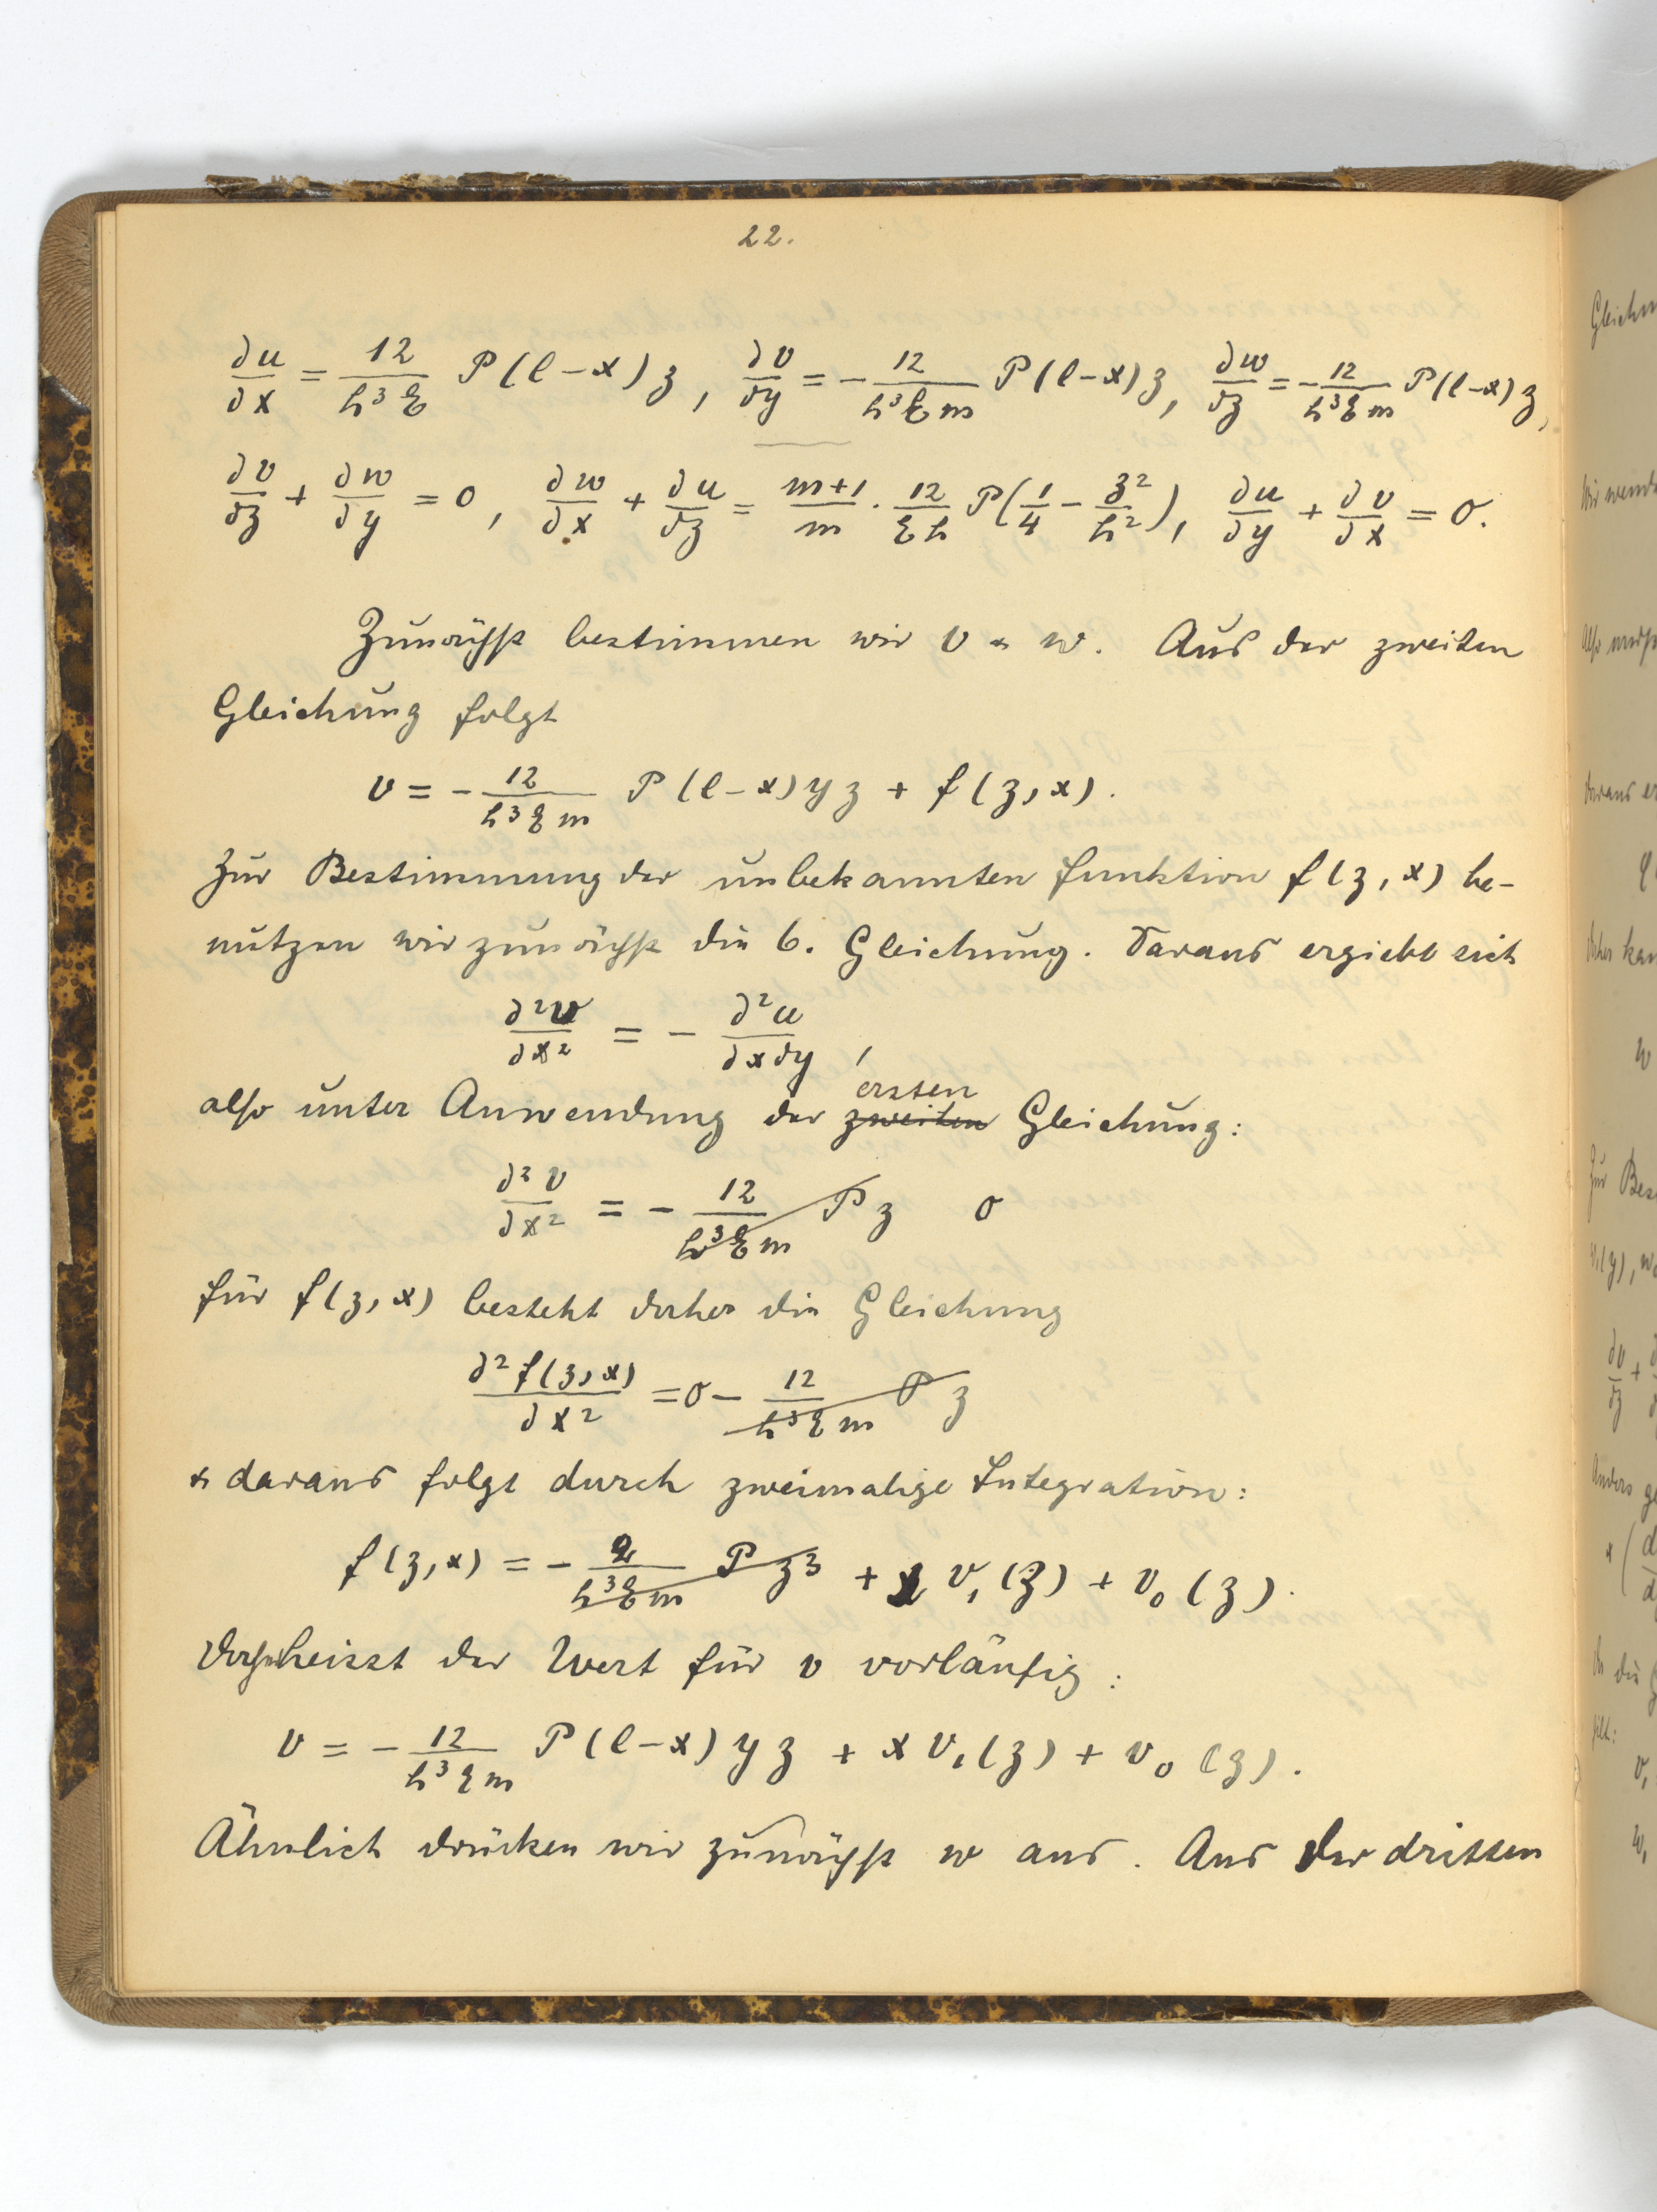 22.
∂u/∂x = 12/(h³E) P(l−x)z, ∂v/∂y = −12/(h³Em) P(l−x)z, ∂w/∂z = −12/(h³Em) P(l−x)z,
∂v/∂z + ∂w/∂y = 0, ∂w/∂x + ∂u/∂z = (m+1)/m · 12/(Eh) P(1/4 − z²/h²), ∂u/∂y + ∂v/∂x = 0.
Zunächst bestimmen wir v & w. Aus der zweiten
Gleichung folgt
v = −12/(h³Em) P(l−x)yz + f(z,x).
Zur Bestimmung der unbekannten Funktion f(z,x) be-
nutzen wir zunächst die 6. Gleichung. Daraus ergiebt sich
∂²v/∂x² = − ∂²u/∂x∂y,
ersten
also unter Anwendung der zweiten Gleichung:
∂²v/∂x² = − 12/(h³Em) P z 0
für f(z,x) besteht daher die Gleichung
∂²f(z,x)/∂x² = 0 − 12/(h³Em) P z
& daraus folgt durch zweimalige Integration:
f(z,x) = − 2/(h³Em) P z³ + x v₁(z) + v₀(z).
Daher heisst der Wert für v vorläufig:
v = −12/(h³Em) P(l−x)yz + x v₁(z) + v₀(z).
Ähnlich drücken wir zunächst w aus. Aus der dritten